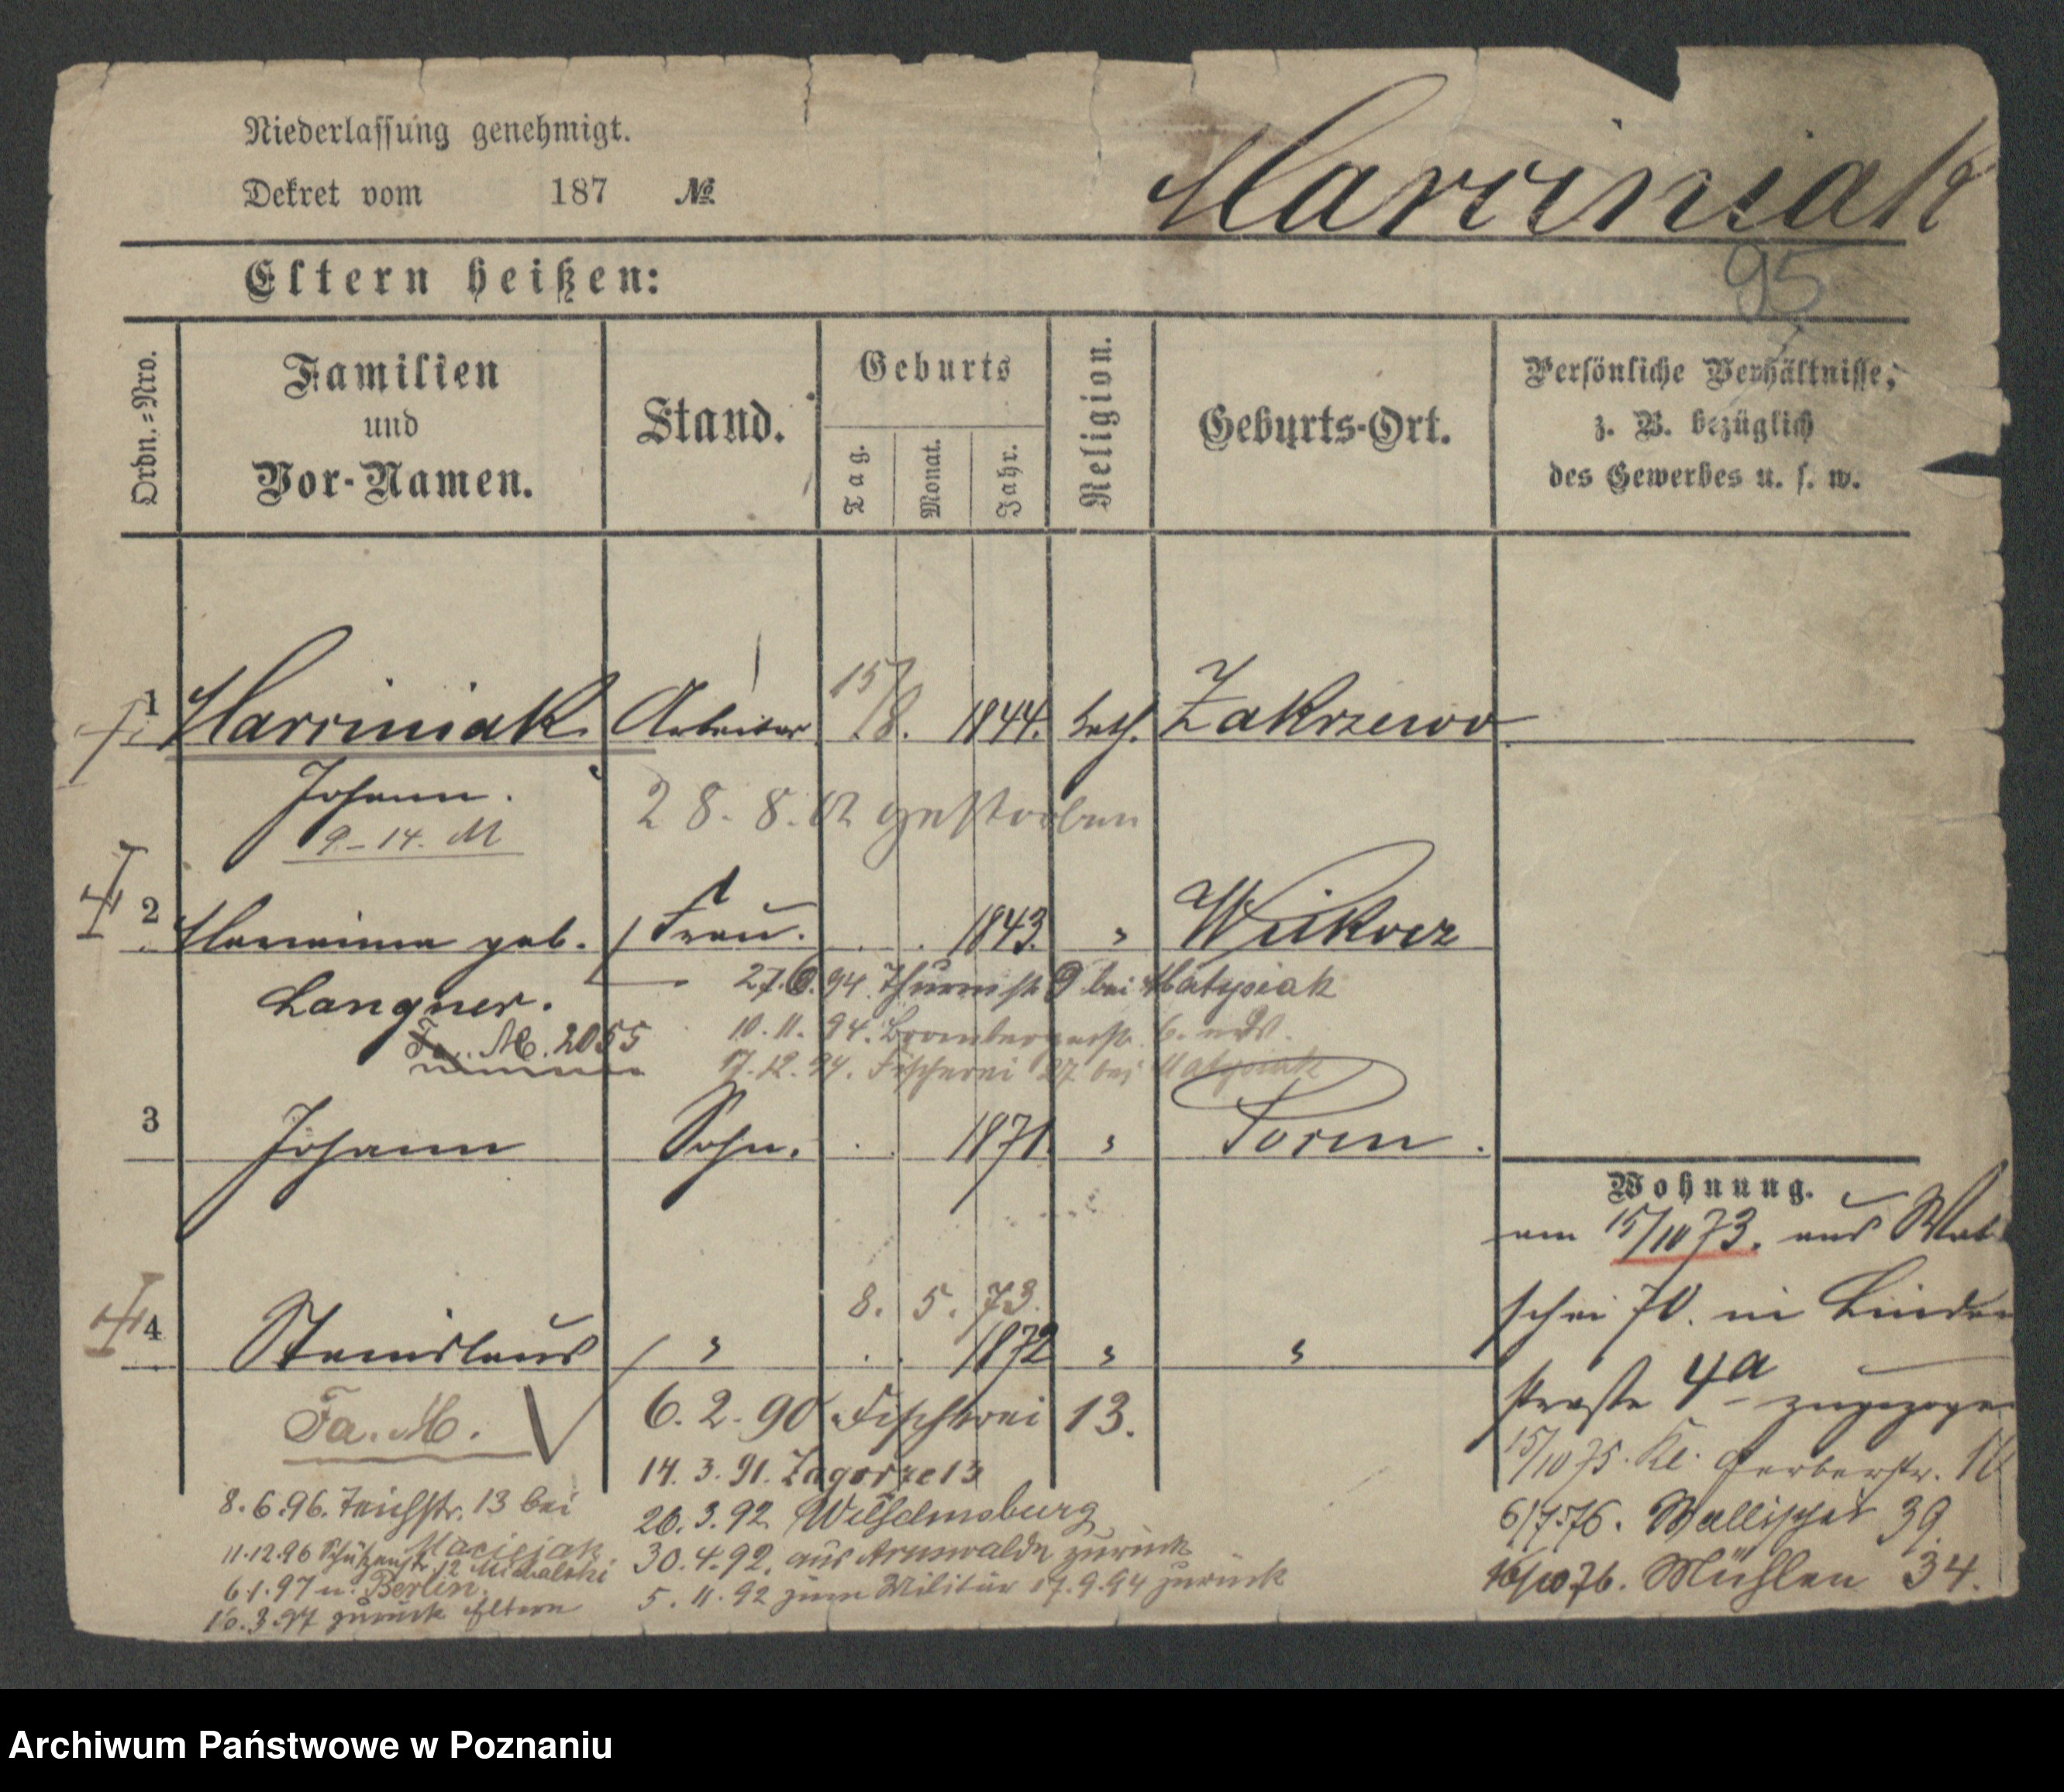 Niederlassung genehmigt.
Dekret vom 187 №
Marciniak
95
Eltern heißen:
Ordn.=Nro.
Familien
und
Vor-Namen.
Stand.
Geburts
Tag.
Monat.
Jahr.
Religion.
Geburts-Ort.
Persönliche Verhältnisse,
z. B. bezüglich
des Gewerbes u. s. w.
15/
1 Marciniak Arbeiter 8. 1844. kath. Zakrzewo
Johann. 28.8. gestorben
9-14. M
2 Marianna geb. Frau. 1843. " 
Langner. 27.6.94 Thurmstr 9 bei Matysiak
Fa. M. 2055 10.11.94. Brombergerstr. 6.
17.12.94. Fischerei 27 bei Matysiak
3 Johann Sohn. 1871. " Posen.
Wohnung.
am 15/10 73. aus Wal
8. 5. 73.
4 Stanislaus " 1872 " "
schei 70. in Linden
straße 4a zugezogen
Fa. M.
6.2.90 Fischerei 13.
15/10 75. Kl. Gerberstr.
14.3.91. Zagorze 13
8.6.96. Teichstr. 13 bei
Maciejak
26.3.92 Wilhelmsburg
6/7.76. Wallischei 39.
11.12.96 Schützenstr. 12 Michalski
30.4.92. aus Arnswalde zurück
6.1.97 n. Berlin.
5.11.92 zum Militär 17.9.94 zurück
16/10 76. Mühlen 34.
16.3.97 zurück Eltern
Archiwum Państwowe w Poznaniu